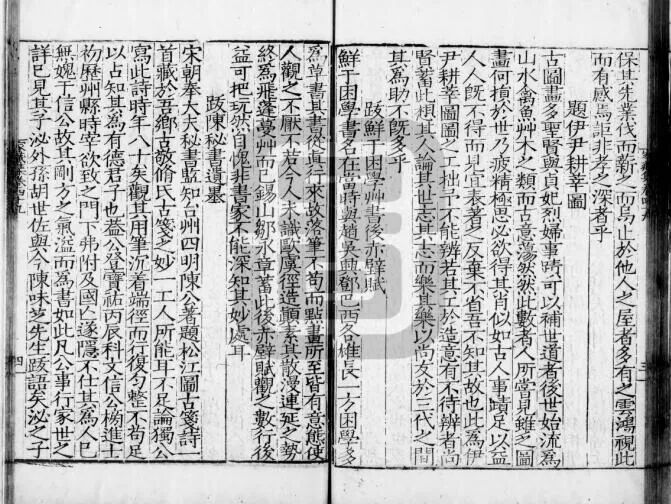 保其先業伐而新之而烏止於他人之屋者多有之雲鴻視此
而有感焉詎非孝之深者乎
題伊尹耕莘圖
古圖畫多聖賢與貞妃烈婦事蹟可以補世道者後世始流為
山水禽魚艸木之類而古意蕩然然此數者人所常見雖乏圖
畫何損於世乃疲精極思必欲得其肖似如古人事蹟足以益
人人旣不得而見宜表著之反棄不省吾不知其故也此為伊
尹耕莘圖圖之工拙予不能辨若其工於造意有不待辨者尚
賢蓄此想其人論其世志其志而樂其樂以尚友於三代之間
其為助不旣多乎
跋鮮于困學艸書後赤壁賦
鮮于困學書名在當時與趙吳興鄧巴西各雄長一方困學多
為草書其書從眞行來故落筆不苟而點畫所至皆有意態使
人觀之不厭不若今人未識歐虞徑造顛素其散漫連延之勢
終為飛蓬蔓艸而已錫山鄒永章蓄此後赤壁賦觀之數行後
益可把玩然自愧非書家不能深知其妙處耳
跋陳秘書遺墓
宋朝奉大夫秘書監知台州四明陳公著題松江圖古箋詩一
首藏於吾鄉古敬脩氏古箋之妙一工人所能耳不足論獨公
寫此詩時年八十矣觀其用筆沉着端徑而又復勻整不苟足
以占知其為有德君子也盖公登寶祐丙辰科文信公榜進士
初歷州縣時宰欲致之門下弗附及國亡遂隱不仕其為人已
無媿于信公故其剛方之氣溢而為書如此凡公事行家世之
詳已見其子泌外孫胡世佐與今陳味芝先生跋語矣泌之子